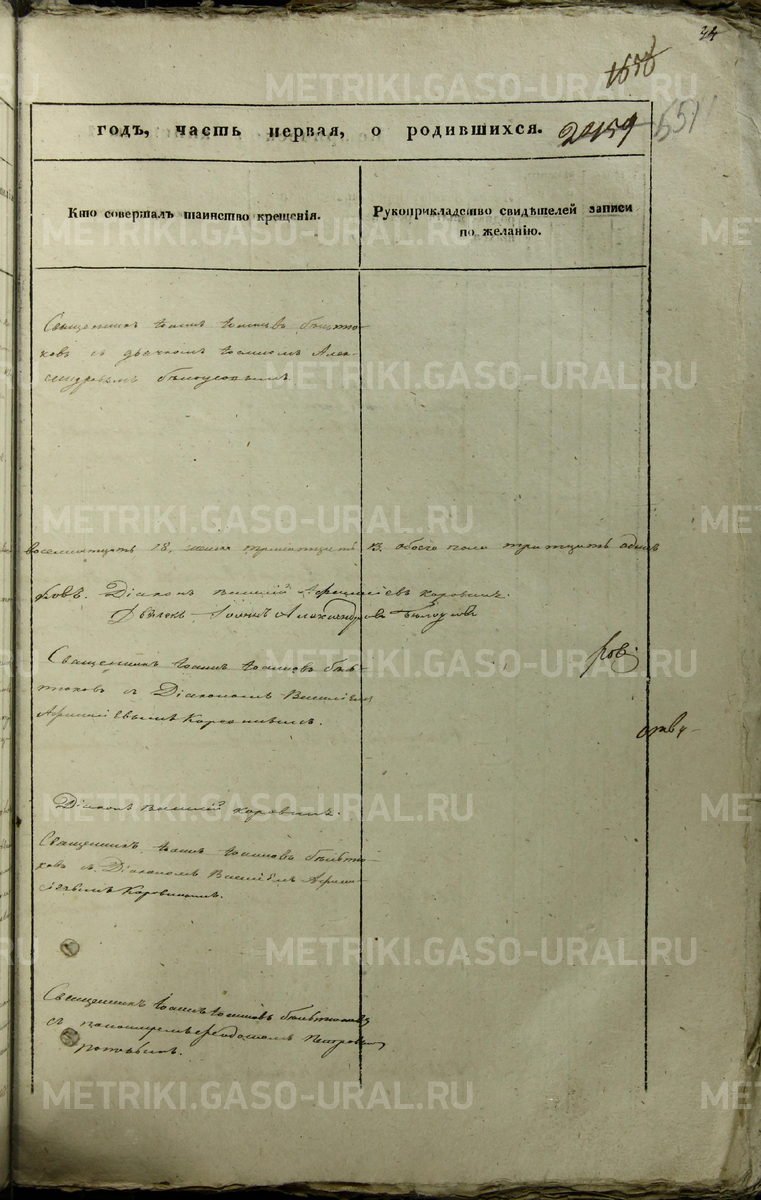 34
1656
годъ, часть первая, о родившихся. 22159 551
Кто совершалъ таинство крещенія.
Рукоприкладство свидѣтелей записи
по желанію.
Священникъ Іоаннъ Іоанновъ
ковъ съ дьячкомъ Іоанномъ Алек-
сандровымъ Бѣлоусовымъ
восемнатцать 18, женска тринатцать 13. обоего пола тритцать одинъ
ковъ. Діаконъ Василій Афанасіевъ Коровинъ.
Дьячекъ Іоаннъ Александровъ Белоусовъ
Священникъ Іоаннъ Іоанновъ
съ Діакономъ Василіемъ
Афанасіевымъ Коровинымъ.
ков.
Діаконъ Василій Коровинъ.
Священникъ Іоаннъ Іоанновъ
ковъ съ Діакономъ Василіемъ Афана-
сіевымъ Коровинымъ.
Священникъ Іоаннъ Іоанновъ
съ пономаремъ Ѳеодоромъ Петровымъ
METRIKI.GASO-URAL.RU